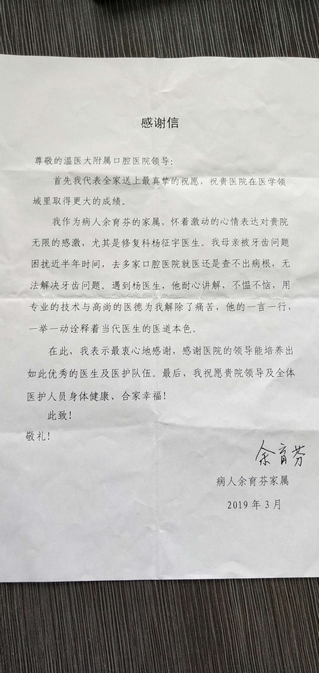 感谢信
尊敬的温医大附属口腔医院领导：
首先我代表全家送上最真挚的祝愿，祝贵医院在医学领
域里取得更大的成绩。
我作为病人余育芬的家属，怀着激动的心情表达对贵院
无限的感激，尤其是修复科杨征宇医生。我母亲被牙齿问题
困扰近半年时间，去多家口腔医院就医还是查不出病根，无
法解决牙齿问题。遇到杨医生，他耐心讲解，不愠不恼，用
专业的技术与高尚的医德为我解除了痛苦，他的一言一行，
一举一动诠释着当代医生的医道本色。
在此，我表示最衷心地感谢医院的领导能培养出
如此优秀的医生及医护队伍。最后，我祝愿贵院领导及全体
医护人员身体健康、合家幸福！
此致！
敬礼！
余育芬
病人余育芬家属
2019 年 3 月